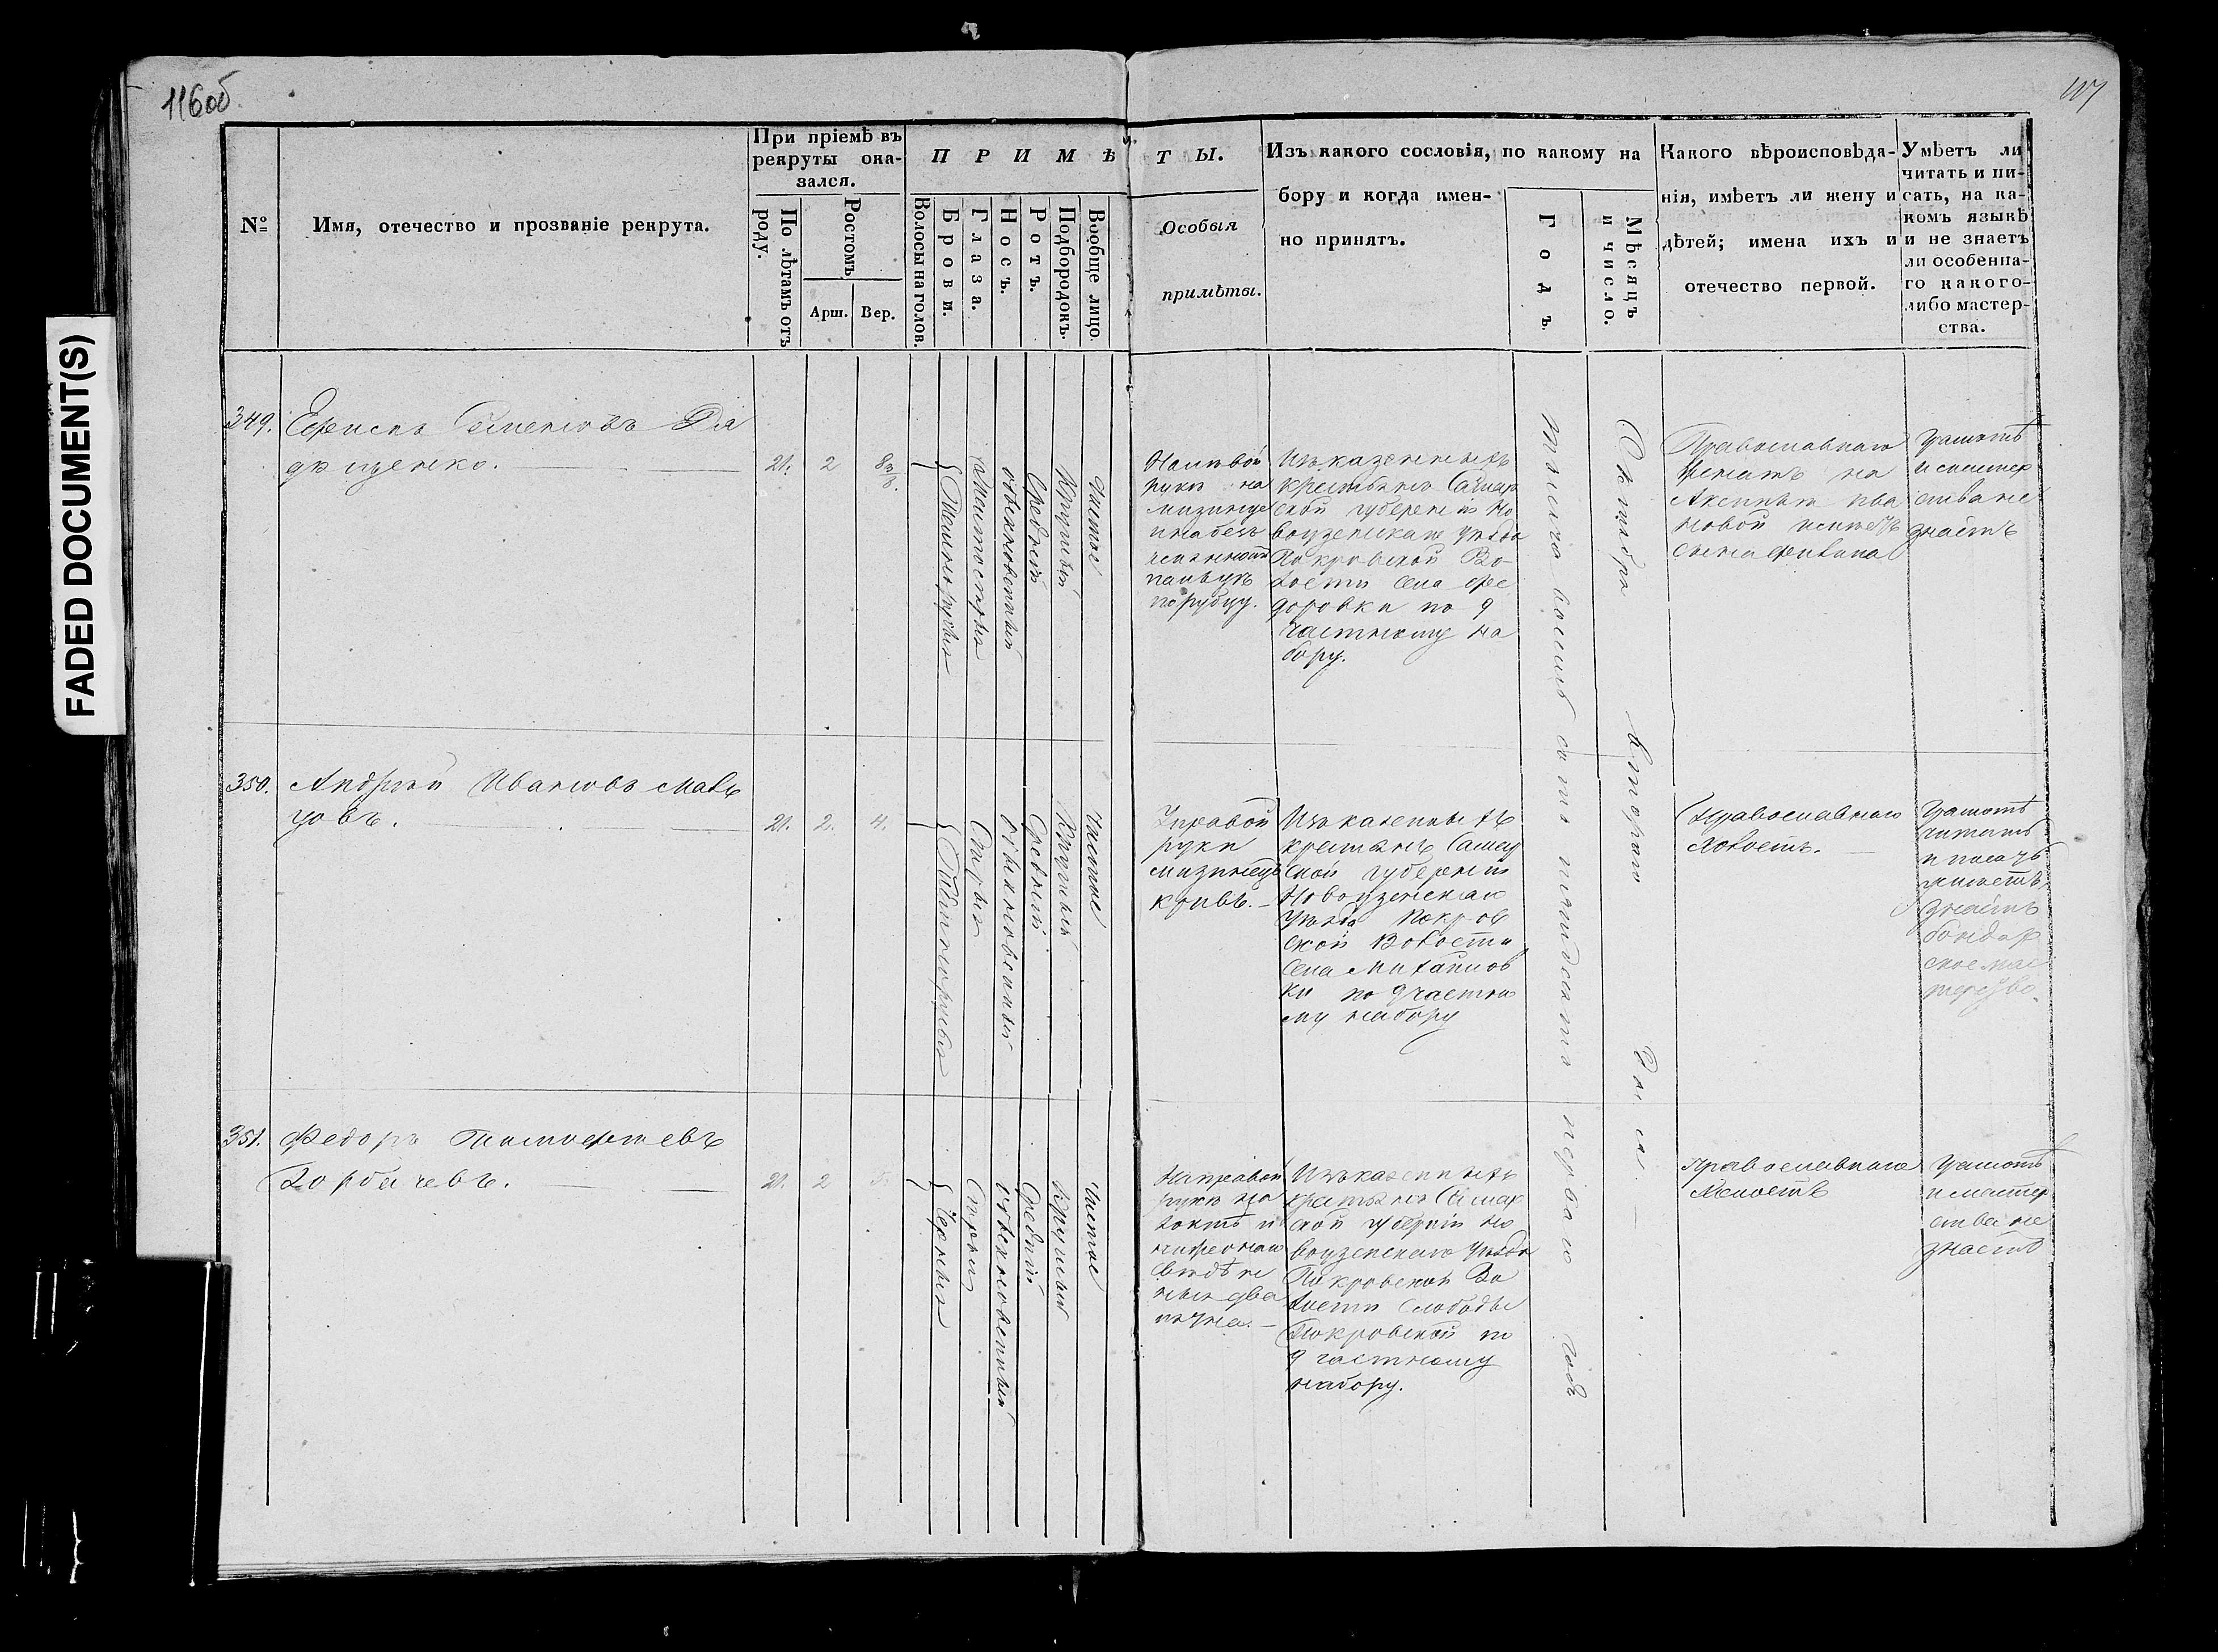 116 об.
117
FADED DOCUMENT(S)
№
Имя, отечество и прозваніе рекрута.
При пріемѣ въ
рекруты ока-
зался.
По лѣтамъ отъ
роду.
Ростомъ
Арш.
Вер.
ПРИМѢ
Волосы на голов.
Брови.
Глаза.
Носъ.
Ротъ.
Подбородокъ.
Вообще лицо.
ТЫ.
Особыя
примѣты.
Изъ какого сословія, по какому на
бору и когда имен-
но принятъ.
Годъ.
Мѣсяцъ
и число.
Какого вѣроисповѣда-
нія, имѣетъ ли жену и
дѣтей; имена ихъ и
отечество первой.
Умѣетъ ли
читать и пи-
сать, на ка-
комъ языкѣ
и не знаетъ
ли особенна-
го какого-
либо мастер-
ства.
349.
Семеновъ
21.
2
8 3/8.
Темнорусыя
обыкновенный
Средній
Круглый
Чистое
На лѣвой
рукѣ на
мизинцѣ
по рубцу.
Изъ казенныхъ
крестьянъ Самар
ской губерніи Но
воузенскаго уѣзда
Покровской Во-
лости села Фе
доровки по 9
частному на
бору.
Тысяча восемь сотъ пятьдесятъ перваго года
Октября втораго дня
Православнаго
женатъ на
новой имѣетъ
сына
Грамотѣ
и мастер
ства не
знаетъ
350.
Андрей Ивановъ Маль
цовъ.
21.
2.
4.
Темнорусыя
Сѣрыя
Обыкновенный
Средній
Круглый
Чистое
У правой
руки
мизинецъ
кривъ.
Изъ казенныхъ
крестьянъ Самар
ской губерніи
Новоузенскаго
уѣзда Покров
ской Волости
села Михайлов
ки по 9 частно
му набору
Православнаго
Холостъ.
Грамотѣ
читать
и писать
умѣетъ,
знаетъ
бондар
ское мас
терство.
351.
Федоръ Тимофеевъ
Горбачевъ.
21.
2
5.
Черныя
Сѣрыя
обыкновенный
Средній
Круглый
Чистое
На правой
рукѣ
два
пятна.
Изъ казенныхъ
крестьянъ Самар
ской губерніи Но
воузенскаго уѣзда
Покровской Во
лости Слободы
Покровской по
9 частному
набору.
Православнаго
Холостъ
Грамотѣ
и мастер
ства не
знаетъ